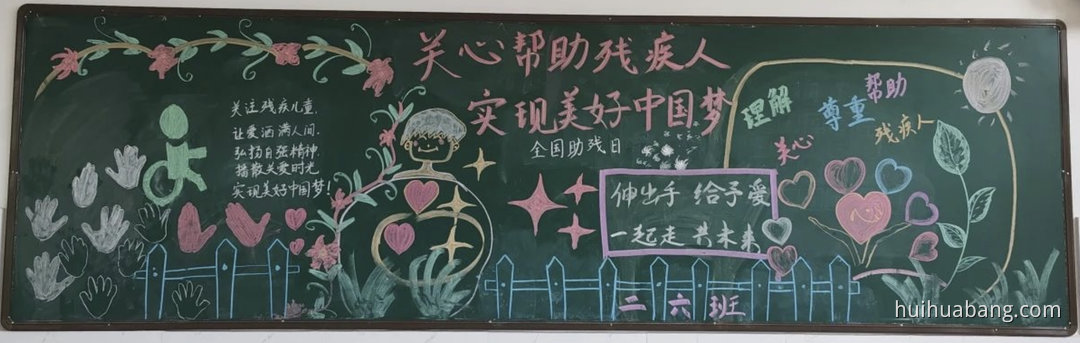 关心帮助残疾人
实现美好中国梦
全国助残日
关注残疾儿童.
让爱洒满人间.
弘扬自强精神.
播散关爱时光
实现美好中国梦!
伸出手 给予爱
一起走 共未来
理解
尊重
帮助
关心
残疾人
二 六 班
huihuabang.com